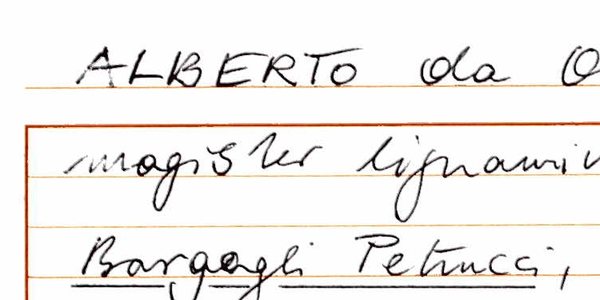 ALBERTO da O
magister lignamin
Bargagli Petrucci,